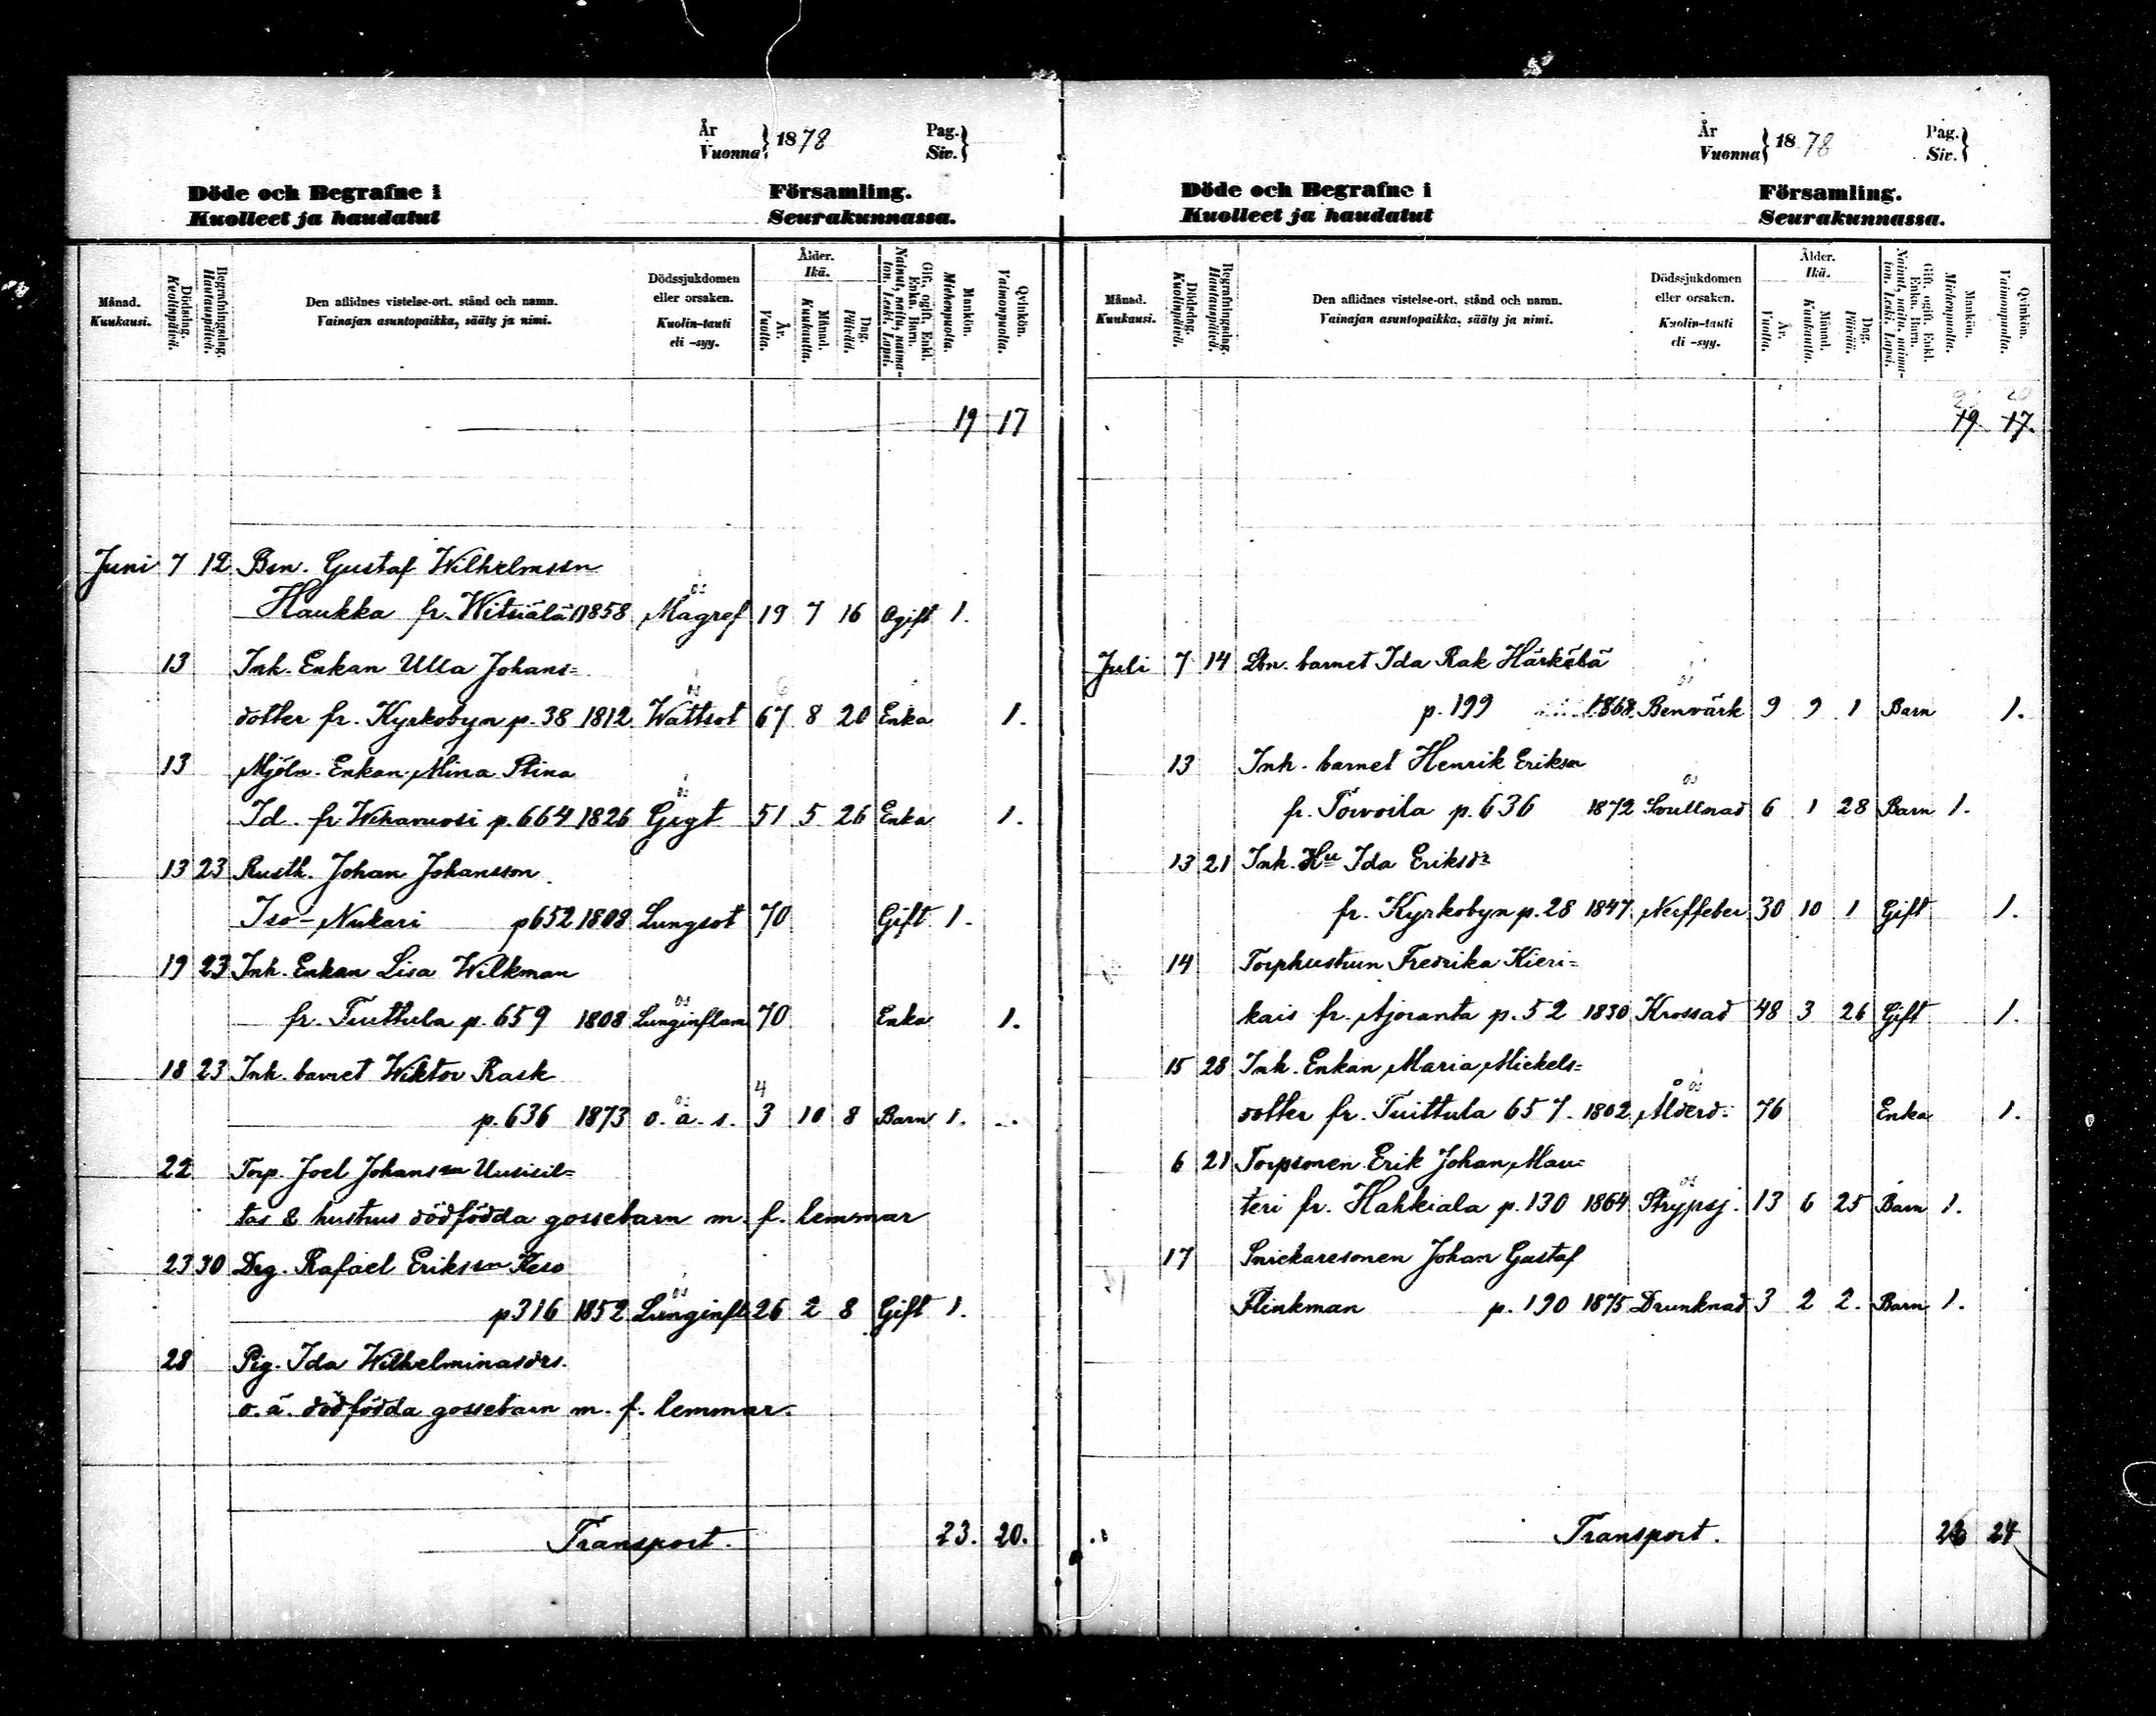 År
Vuonna } 1878
Pag.
Siv. }
Döde och Begrafne i Församling.
Kuolleet ja haudatut Seurakunnassa.
Månad. Kuukausi.
Dödsdag. Kuolinpäivä.
Begrafningsdag. Hautauspäivä.
Den aflidnes vistelse-ort, stånd och namn.
Vainajan asuntopaikka, sääty ja nimi.
Dödssjukdomen eller orsaken.
Kuolin-tauti eli -syy.
Ålder. Ikä.
År. Vuotta.
Månad. Kuukautta.
Dag. Päivää.
Gift, ogift, Enkl. Enka, Barn.
Nainut, naitu, naimaton, Leski, Lapsi.
Mankön. Miehenpuolta.
Qvinkön. Vaimonpuolta.
19 17
Juni 7 12 Bsn. Gustaf Wilhelmssn
Haukka fr. Witsiälä 1858 Magref 19 7 16 Ogift 1.
13 Inh. Enkan Ulla Johans=
dotter fr. Kyrkobyn p. 38 1812 Wattsot 67 8 20 Enka 1.
13 Mjöln. Enkan Mina Stina
Id. fr Wihavuosi p. 664 1826 Gigt 51 5 26 Enka 1.
13 23 Rusth. Johan Johansson
Iso-Nukari p652 1808 Lungsot 70 Gift 1.
19 23 Inh. Enkan Lisa Wilkman
fr. Tuittula p. 659 1808 Lunginflam 70 Enka 1.
18 23 Inh. barnet Wiktor Rask
4
p. 636 1873 o. ä. s. 3 10 8 Barn 1.
22 Torp. Joel Johanssn Uusisil=
tas & hustrus dödfödda gossebarn m. f. lemmar
23 30 Drg. Rafael Erikssn Keso
p316 1852 Lunginfl. 26 2 8 Gift 1.
28 Pig. Ida Wilhelminasdrs.
o. ä. dödfödda gossebarn m. f. lemmar.
Transport. 23. 20.
År
Vuonna } 1878
Pag.
Siv. }
Döde och Begrafne i Församling.
Kuolleet ja haudatut Seurakunnassa.
Månad. Kuukausi.
Dödsdag. Kuolinpäivä.
Begrafningsdag. Hautauspäivä.
Den aflidnes vistelse-ort, stånd och namn.
Vainajan asuntopaikka, sääty ja nimi.
Dödssjukdomen eller orsaken.
Kuolin-tauti eli -syy.
Ålder. Ikä.
År. Vuotta.
Månad. Kuukautta.
Dag. Päivää.
Gift, ogift, Enkl. Enka, Barn.
Nainut, naitu, naimaton, Leski, Lapsi.
Mankön. Miehenpuolta.
Qvinkön. Vaimonpuolta.
23 20
19 17.
Juli 7 14 Lbn. barnet Ida Rak Härkälä
p. 199 1868 Benvärk 9 9 1 Barn 1.
13 Inh. barnet Henrik Erikssn
fr. Toivoila p. 636 1872 Svullnad 6 1 28 Barn 1.
13 21 Inh. Hu Ida Eriksdr
fr. Kyrkobyn p. 28 1847 Nerffeber 30 10 1 Gift 1.
14 Torphustrun Fredrika Kieri=
kais fr. Ajoranta p. 52 1830 Krossad 48 3 26 Gift 1.
15 28 Inh. Enkan Maria Mickels=
dotter fr. Tuittula 657. 1802 Ålderd. 76 Enka 1.
6 21 Torpsonen Erik Johan Mau=
teri fr. Hahkiala p. 130 1864 Strypsj. 13 6 25 Barn 1.
17 Snickaresonen Johan Gustaf
Flinkman p. 190 1875 Drunknad 3 2 2. Barn 1.
Transport. 26 24